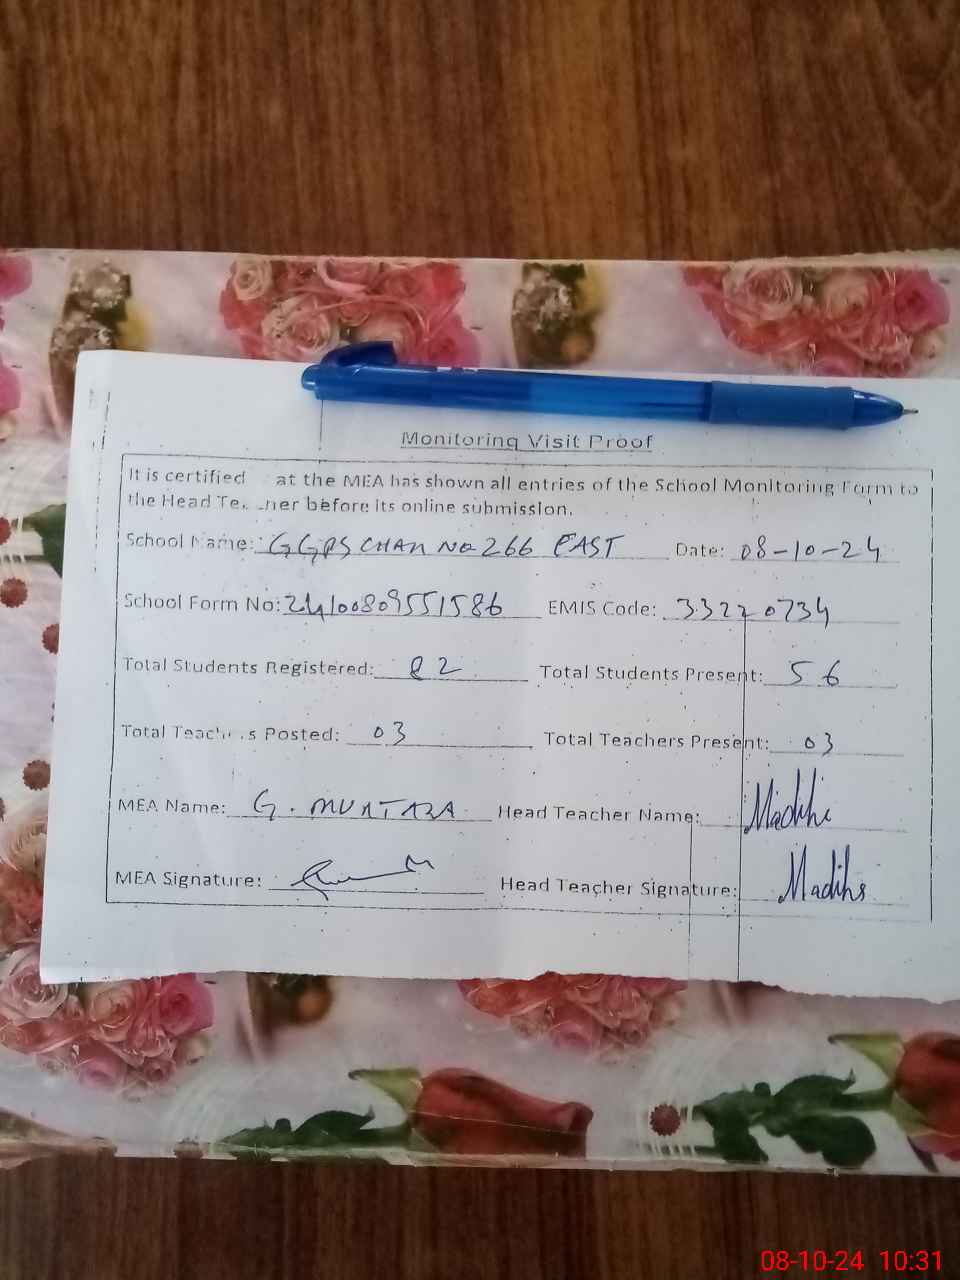 Monitoring Visit Proof
It is certified at the MEA has shown all entries of the School Monitoring Form to
the Head before its online submission.
School Name: GGPS CHAK NO 266 EAST Date: 08-10-24
School Form No: 24100809551586 EMIS Code: 33220734
Total Students Registered: 82 Total Students Present: 56
Total Posted: 03 Total Teachers Present: 03
MEA Name: G. MURTAZA Head Teacher Name: Madiha
MEA Signature: Head Teacher Signature: Madiha
08-10-24 10:31